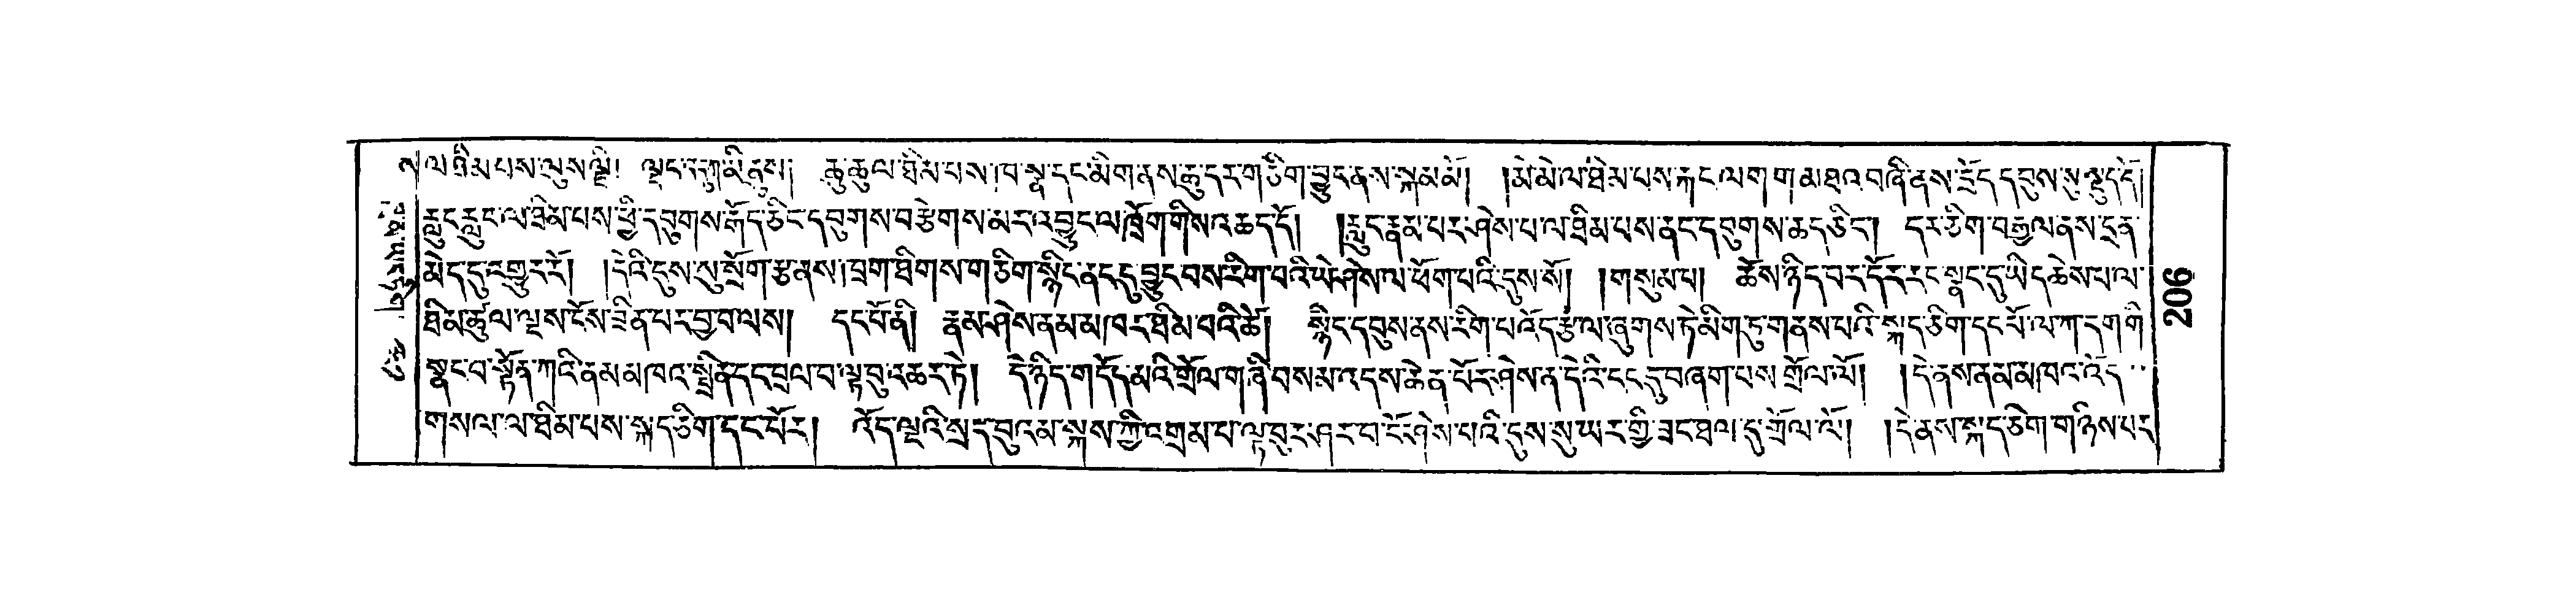 ས་ལ་ཐིམ་པས་ལུས་ལྕི། ལྡང་དཀུ་མི་ནུས། ཆུ་ཆུལ་ཐིམ་པས། ཁ་སྣ་དང་མིག་ནས་ཆུ་དར་གཅིག་བྱུང་ནས་སྐམ་མོ། །མེ་མེ་ལ་ཐིམ་པས་རྐང་ལག་གམ་ཐའ་བཞི་ནས་དྲོད་དབུས་སུ་སྡུད་དོ།
རླུང་རླུང་ལ་ཐིམ་པས་ཕྱི་དབུགས་རྒོད་ཅིང་དབུགས་བརྩེགས་མར་འབྱུང་ལ་ཁྲོག་གིས་འཆད་དོ། །རླུང་རྣམ་པར་ཤེས་པ་ལ་ཐིམ་པས་ནང་དབུགས་ཆད་ཅིང། དར་ཅིག་བརྒྱལ་ནས་དྲན་
མེད་དུ་འགྱུར་རོ། །དེའི་དུས་སུ་སྲོག་རྩ་ནས། ཁྲག་ཐིགས་གཅིག་སྙིང་ནང་དུ་བྱུང་བས་རིག་པའི་ཡེ་ཤེས་ལ་ཕོག་པའི་དུས་སོ། །གསུམ་པ། ཆོས་ཉིད་བར་དོར་རང་སྣང་དུ་ཡིད་ཆེས་པ་ལ་
ཐིམ་ཚུལ་ལྔས་ངོས་ཟིན་པར་བྱ་བ་ལས། དང་པོ་ནི། རྣམ་ཤེས་ནམ་མཁར་ཐིམ་པའི་ཚེ། སྙིང་དབུས་ནས་རིག་པ་འོད་རྩ་ལ་ཞུགས་ཏེ་མིག་ཏུ་གནས་པའི་སྐད་ཅིག་དང་པོ་ལ་ཀ་དག་གི་
སྣང་བ་སྟོན་ཀའི་ནམ་མཁའ་སྤྲིན་དང་བྲལ་བ་ལྟ་བུ་འཆར་ཏེ། དེ་ཉིད་གདོད་མའི་གྲོལ་གཞི་བསམ་འདས་ཆེན་པོར་ཤེས་ན་དེའི་ངང་དུ་བཞག་པས་གྲོལ་ལོ། །དེ་ནས་ནམ་མཁའ་འོད་
གསལ་ལ་ཐིམ་པས་སྐད་ཅིག་དང་པོར། འོད་ལྔའི་སྲད་བུའམ་སྐས་ཀྱི་འགྲམ་པ་ལྟ་བུར་ཤར་བ་ངོ་ཤེས་པའི་དུས་སུ་ཡར་གྱི་ཟང་ཐལ་དུ་གྲོལ་ལོ། །དེ་ནས་སྐད་ཅིག་གཉིས་པར